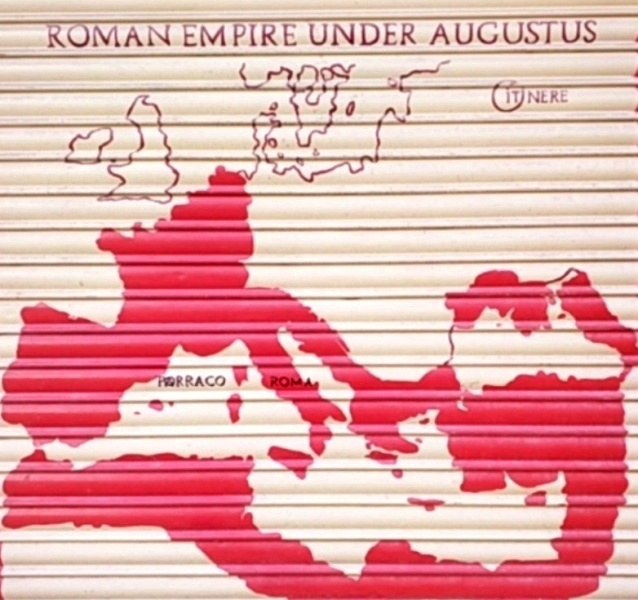 ROMAN EMPIRE UNDER AUGUSTUS
ITNERE
ROMA